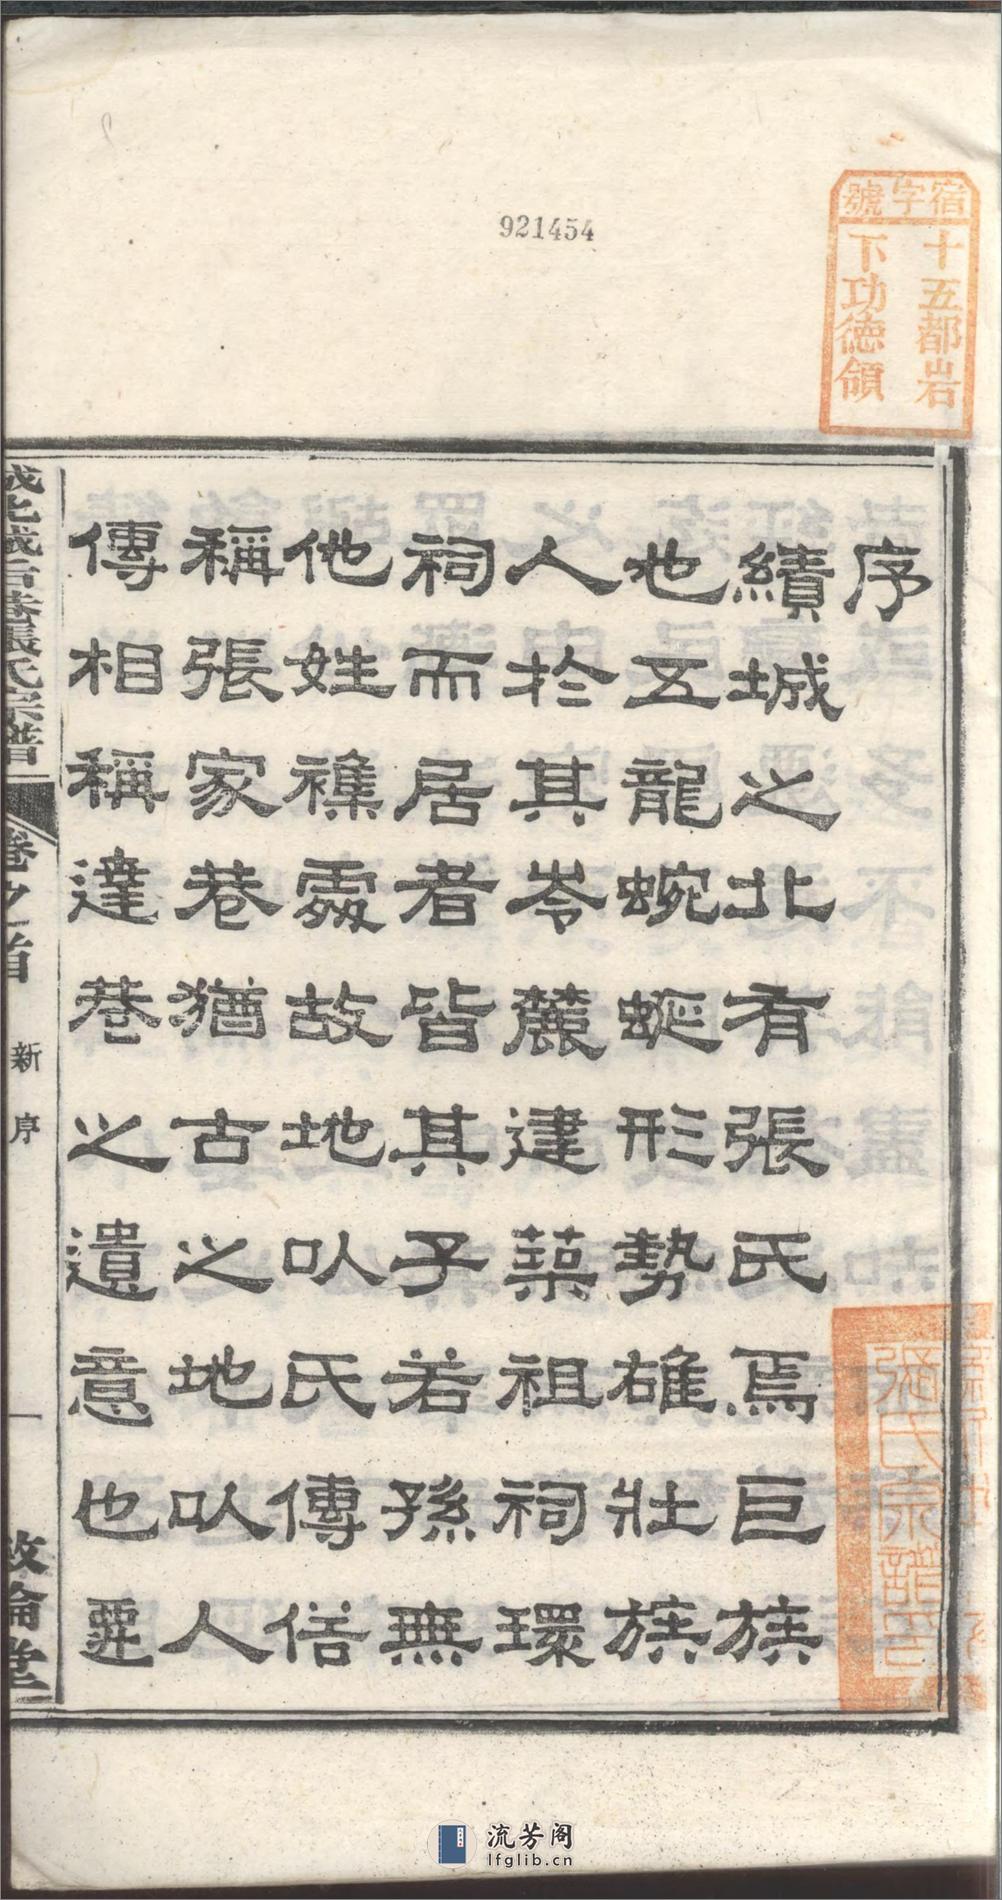 921454
宿字號
十五都岩
下功德領
序
績城之北有張氏焉巨族
也五龍蜿蜒形勢雄壯族
人於其岑麓建築祖祠環
祠而居者皆其子若孫無
他姓襍處故地以氏傳俗
稱張家巷猶古之地以人
傳相稱達巷之遺意也粵
張氏宗譜
卷之首
新序
一
敘倫堂
流芳阁
lfglib.cn